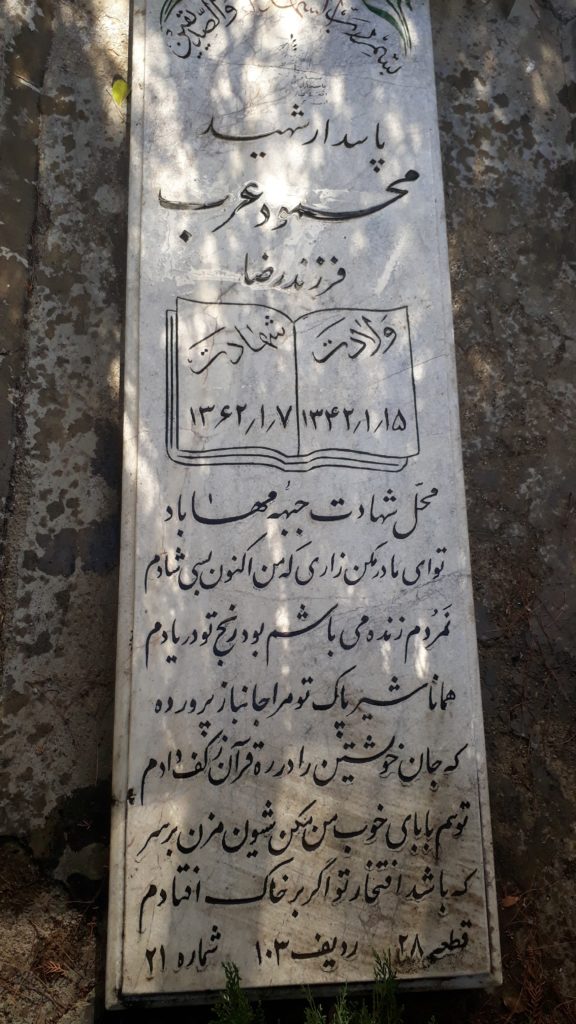 بسم رب الشهداء والصدیقین
پاسدار شهید
محمود عرب
فرزند رضا
ولادت شهادت
۱۳۴۲/۱/۱۵ ۱۳۶۲/۱/۷
محل شهادت جبهه مهاباد
تو ای مادر مکن زاری که من اکنون بسی شادم
نمردم زنده می باشم بود رنج تو در یادم
همانا شیر پاک تو مرا جانباز پرورده
که جان خویشتن را در ره قرآن ز کف دادم
تو هم بابای خوب من مکن شیون مزن بر سر
که باشد افتخار تو اگر بر خاک افتادم
قطعه ۲۸ ردیف ۱۰۳ شماره ۲۱